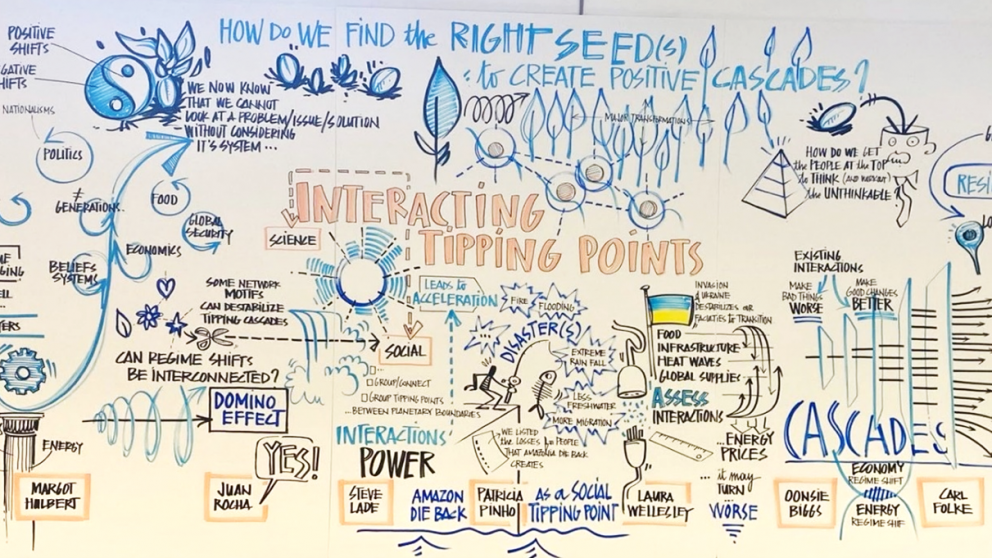 HOW DO WE FIND the RIGHT SEED(S)
to CREATE POSITIVE CASCADES?
POSITIVE
SHIFTS
GATIVE
HIFTS
NATIONALISMS
POLITICS
WE NOW KNOW
THAT WE CANNOT
LOOK AT A PROBLEM/ISSUE/SOLUTION
WITHOUT CONSIDERING
IT'S SYSTEM ...
MAJOR TRANSFORMATIONS
HOW DO WE GET
the PEOPLE AT the TOP
to THINK
the UNTHINKABLE?
RESI
≠
GENERATIONS..
FOOD
GLOBAL
SECURITY
ECONOMICS
BELIEFS
SYSTEMS
GING
INTERACTING
TIPPING POINTS
SCIENCE
SOME NETWORK
MOTIFS
CAN DESTABILIZE
TIPPING CASCADES
CAN REGIME SHIFTS
BE INTERCONNECTED?
DOMINO
EFFECT
YES!
LEADS to
ACCELERATION
SOCIAL
GROUP/CONNECT
GROUP TIPPING POINTS
...BETWEEN PLANETARY BOUNDARIES
INTERACTIONS
POWER
FIRE
FLOODING
DISASTER(S)
EXTREME
RAIN FALL
LESS
FRESHWATER
MORE MIGRATION
WE LISTED
the LOSSES for PEOPLE
THAT AMAZONIA DIE BACK
CREATES
INVASION
UKRAINE
DESTABILIZES OUR
FACILITIES to TRANSITION
FOOD
INFRASTRUCTURE
HEAT WAVES
GLOBAL SUPPLIES
ASSESS
INTERACTIONS
...ENERGY
PRICES
... it may
TURN
WORSE
EXISTING
INTERACTIONS
MAKE
BAD THINGS
WORSE
MAKE
GOOD CHANGES
BETTER
CASCADES
ECONOMY
REGIME SHIFT
ENERGY
REGIME SHIF
ENERGY
MARGOT
HULBERT
JUAN
ROCHA
STEVE
LADE
AMAZON
DIE BACK
PATRICIA
PINHO
AS a SOCIAL
TIPPING POINT
LAURA
WELLESLEY
OONSIE
BIGGS
CARL
FOLKE